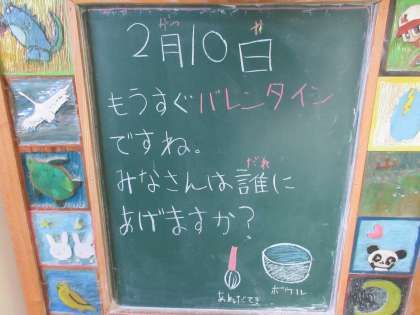 がつ か
2月10日
もうすぐバレンタイン
ですね。
だれ
みなさんは誰に
あげますか?
ボウル